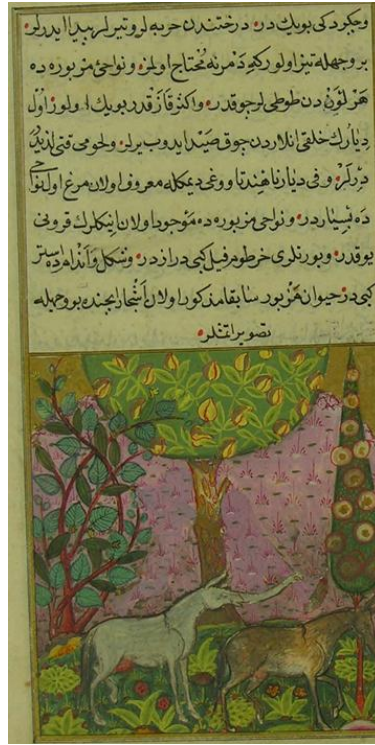 وجكردكى بويك در درختندن حربه لر و تيرلر پيدا ايدرلر
بر وجهله تيز اولور كه دمرنه محتاج اولمز و نواحئ مزبوره ده
هر لوندن طوطى لر چوقدر و اكثر قاز قدر بويك اولور اول
ديارك خلقى انلاردن چوق صيد ايدوب يرلر و لحومى قتى لذيذ
درلر و فى ديارنا هندتاووغى ديمكله معروف اولان مرغ اول نواحى
ده بسيار در و نواحئ مزبوره ده موجود اولان اينكلرك قرونى
يوقدر و بورنلرى خرطوم فيل كبى دراز در و شكل و اندامده ستر
كبى در حيوان مزبور سابقا مذكور اولان اشجار ايچنده بو وجهله
تصوير اتمشلر